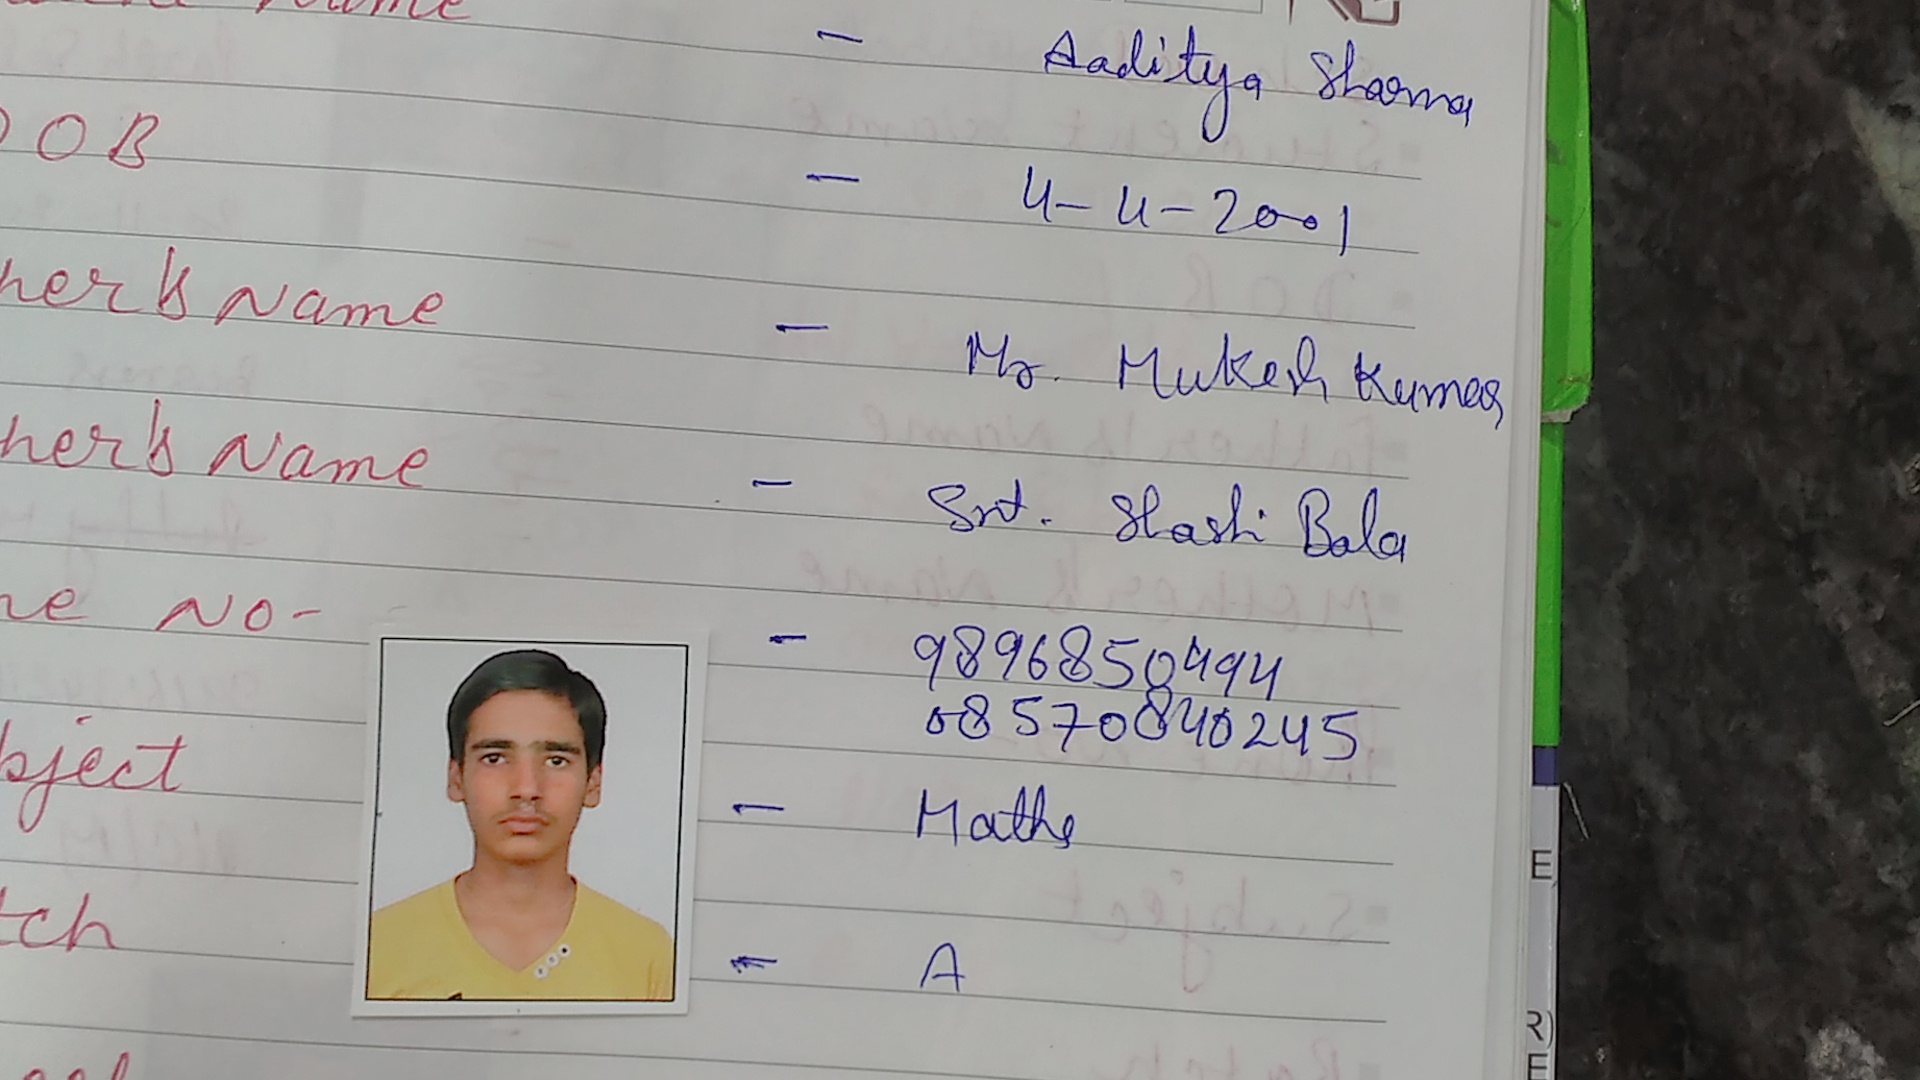 Name - Aaditya Sharma
DOB - 4-4-2001
her's Name - Mr. Mukesh Kumar
her's Name - Smt. Shashi Bala
ne NO- - 9896850494
08570840245
bject - Maths
tch - A
E
R)
E